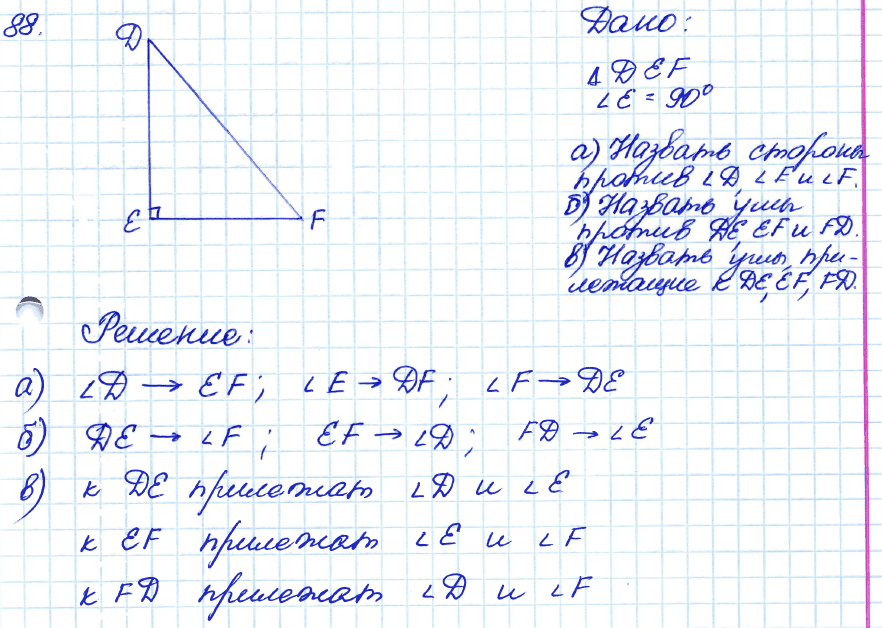 88.
D
E
F
Дано:
△DEF
∠E = 90°
а) Назвать стороны
против ∠D, ∠E и ∠F.
б) Назвать углы
против DE, EF и FD.
в) Назвать углы, при-
лежащие к DE, EF, FD.
Решение:
а) ∠D → EF; ∠E → DF; ∠F → DE
б) DE → ∠F; EF → ∠D; FD → ∠E
в) к DE прилежат ∠D и ∠E
к EF прилежат ∠E и ∠F
к FD прилежат ∠D и ∠F